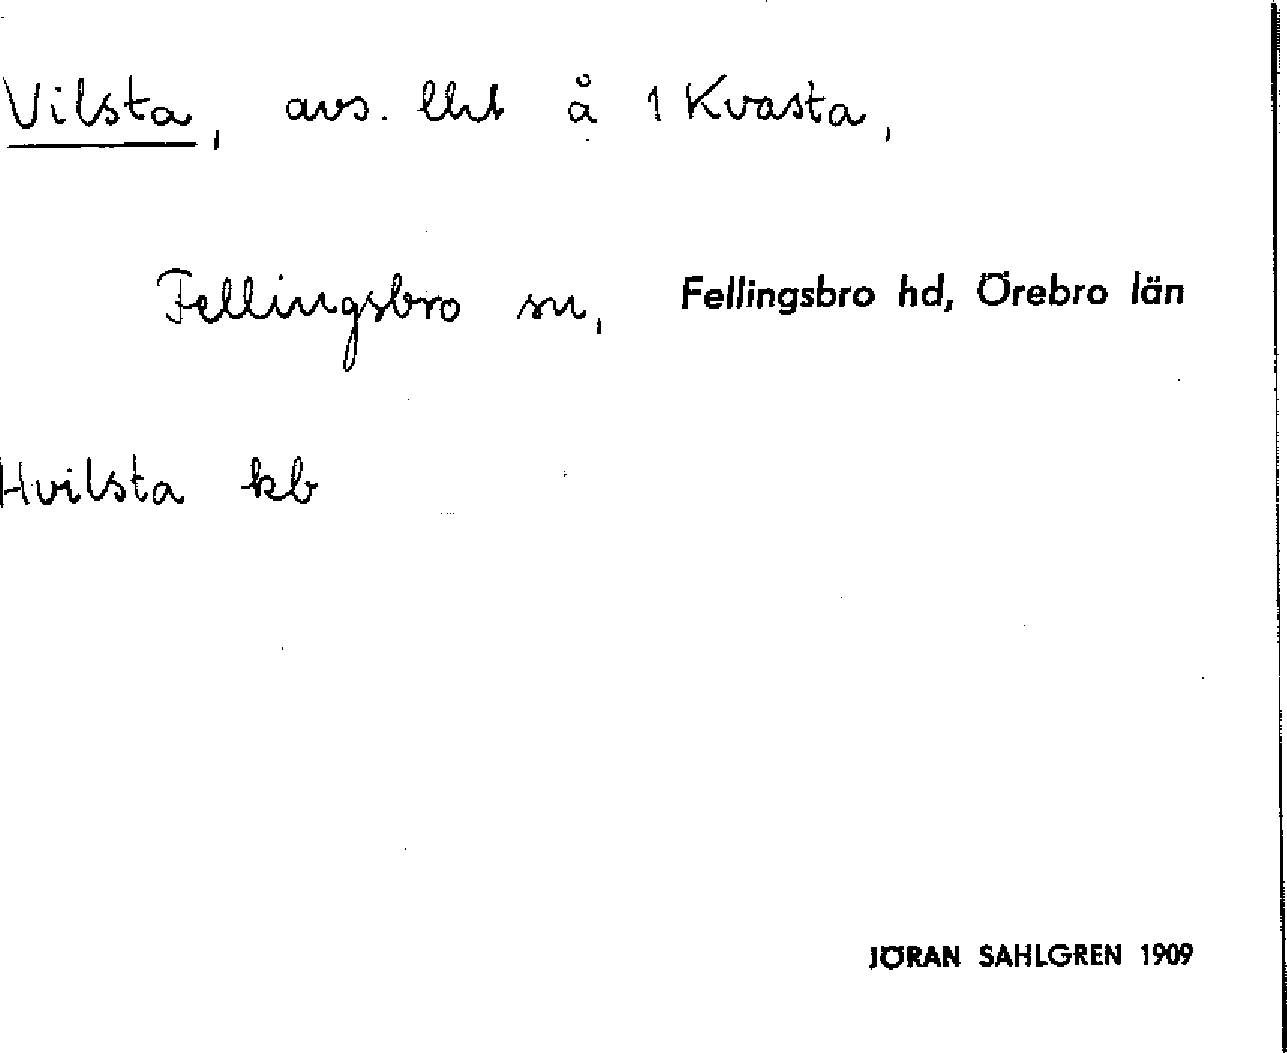 Vilsta, avs. lht å 1 Kvasta,
Fellingsbro sn, Fellingsbro hd, Örebro län
Hvilsta kb
JÖRAN SAHLGREN 1909